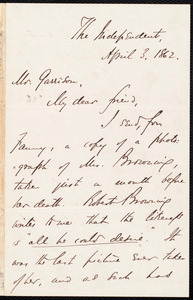 The Independent,
April 3, 1862.
Mr. Garrison,
My dear friend,
I send, for
Fanny, a copy of a photo-
graph of Mrs. Browning,
taken just a month before
her death. Robert Browning
writes to me that the likeness
is "all he could desire." It
was the last picture ever taken
of her, and as such has